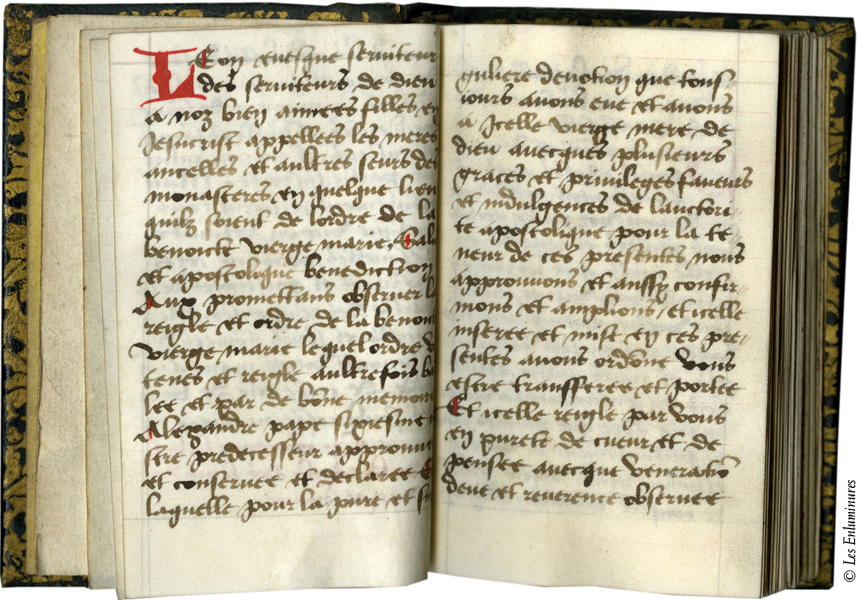 Leon euesque seruiteur
des seruiteurs de dieu
A noz bien aimees filles en
Jesucrist appellees les meres
ancelles et aultres seurs des
monasteres en quelque lieu
quilz soient de lordre de la
benoicte vierge marie, Salu
et apostolique benediction
Aux promettans obseruer la
reigle et ordre de la benoit
vierge marie lequel ordre
tenes et reigle aultrefois ba
lee et par de bõne memoire
Alexandre pape sixiesme
stre predecesseur approuue
et conseruee et declaree
laquelle pour la pure et sin
guliere deuotion que tous-
iours auons eue et auons
a Jcelle vierge mere de
dieu auecques plusieurs
graces et priuileges faueurs
et indulgences de lauctori-
te apostolique pour la te-
neur de ces presentes nous
approuuons et aussy confir-
mons et amplions, et icelle
inseree et mise en ces pre-
sentes auons ordõne vous
estre transferee et portee
Et icelle reigle par vous
en purete de cueur et de
pensee auecque veneratiõ
deue et reuerence obseruee
© Les Enluminures